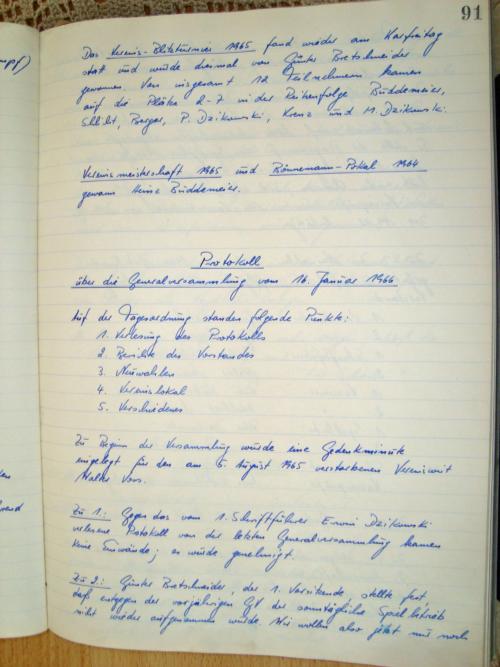 91
Das Vereins-Blitzturnier 1965 fand wieder am Karfreitag
statt und wurde diesmal von Günter Bretschneider
gewonnen. Von insgesamt 12 Teilnehmern kamen
auf die Plätze 2-7 in der Reihenfolge Büddemeier,
Berger, P. Dzikowski, Krenz und M. Dzikowski.
Vereinsmeisterschaft 1965 und Bönnemann-Pokal 1964
gewann Heinz Büddemeier.
Protokoll
über die Generalversammlung vom 16. Januar 1966
Auf der Tagesordnung standen folgende Punkte:
1. Verlesung des Protokolls
2. Berichte des Vorstandes
3. Neuwahlen
4. Vereinslokal
5. Verschiedenes
Zu Beginn der Versammlung wurde eine Gedenkminute
eingelegt für den am 5. August 1965 verstorbenen Vereinswirt
Walter Voss.
Zu 1.: Gegen das vom 1. Schriftführer Erwin Dzikowski
verlesene Protokoll von der letzten Generalversammlung kamen
keine Einwände; es wurde genehmigt.
Zu 2.: Günter Bretschneider, der 1. Vorsitzende, stellte fest
daß entgegen der vorjährigen GV der sonntägliche Spielbetrieb
nicht wieder aufgenommen wurde. Wir wollen aber jetzt nur noch